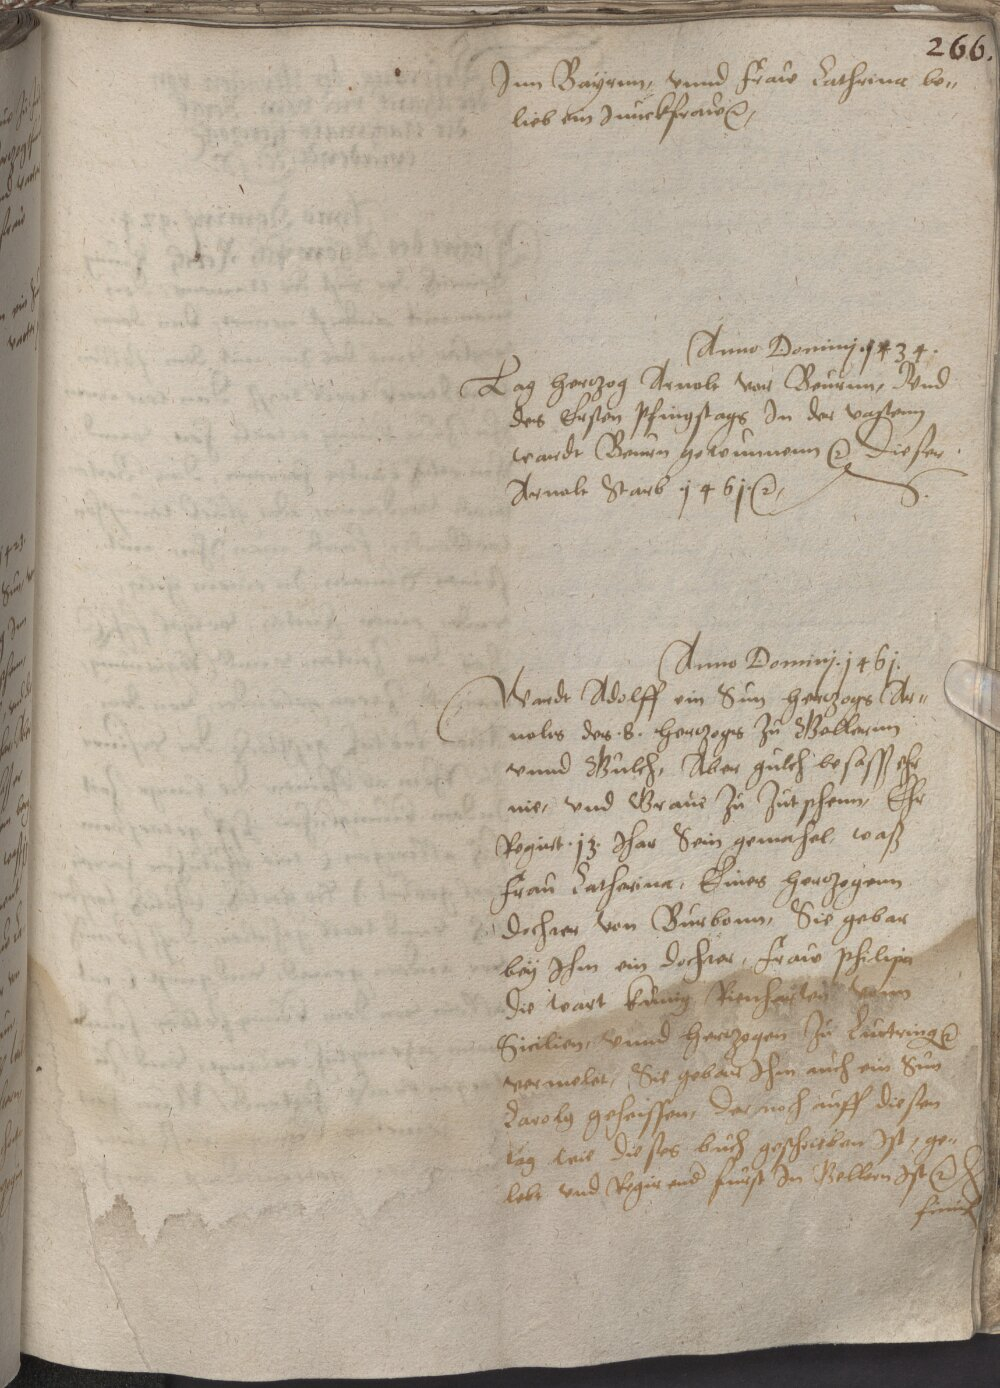 266.
Inn Bayrnn, vnnd Fraw Cathrina be„
lieb ein Junckfraw ꝛc,
Anno Dominj. 1434.
Lag hertzog Arnolt vor Beurnn, Vnd
des Ersten Pfingstags In der vastenn
wardt Beurn gewunnenn ꝛc Dieser
Arnolt Starb 1461 ꝛc,
Anno Dominj. 1461.
Wardt Adolff ein Sun hertzogs Ar„
nolts des .6. hertzogs Zu Gellernn
vnnd Gulch, Aber gulch besass ehr
nie, vnd Graue Zu Zutphenn, Ehr
Regirt .13. Jhar Sein gemahel, waß
Frau Catharina, Eines hertzogenn
dochter von Burbonn, Sie gebar
bey Jhm ein dochter, Fraw Philipa
die wart König Reinharten vonn
Sicilien, vnnd hertzogen Zu Luttring ꝛc
vermelet, Sie gebar Jhm auch ein Sun
Carolg geheissen, Der noch auff diesen
tag wie dieses buch geschrieben Ist, ge„
lebt vnd Regirend furst In Gellern Ist ꝛc
finis